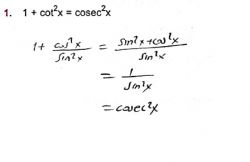 1. 1 + cot²x = cosec²x
1 + cos²x / sin²x = sin²x + cos²x / sin²x
= 1 / sin²x
= cosec²x